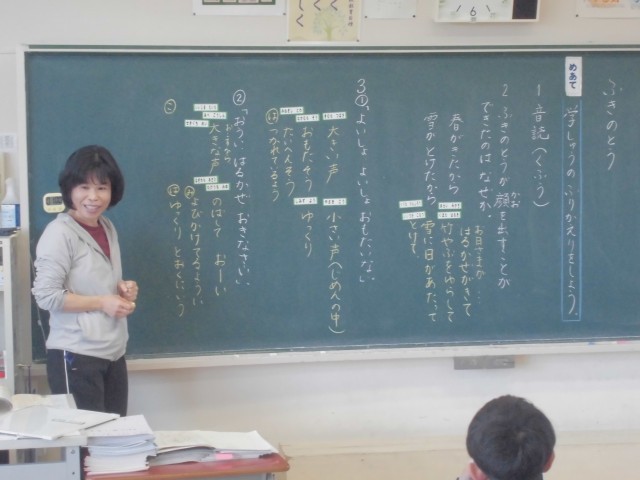 ふきのとう
めあて
学しゅうのふりかえりをしよう。
1 音読(くふう)
2 ふきのとうが顔を出すことができたのはなぜか。
かお
お日さまが…
はるかぜがきて
竹やぶをゆらして
雪に日があたって
とけて、
春がきたから
雪がとけたから
3①、よいしょ、よいしょ、おもたいな。
大きい声 小さい声(じめんの中)
おもたそう ゆっくり
たいへんそう
つかれてるよう
②「おうい、はるかぜ、おきなさい。」
大きな声 のばして おーい
よびかけてるように
ゆっくり とおくにいう
6